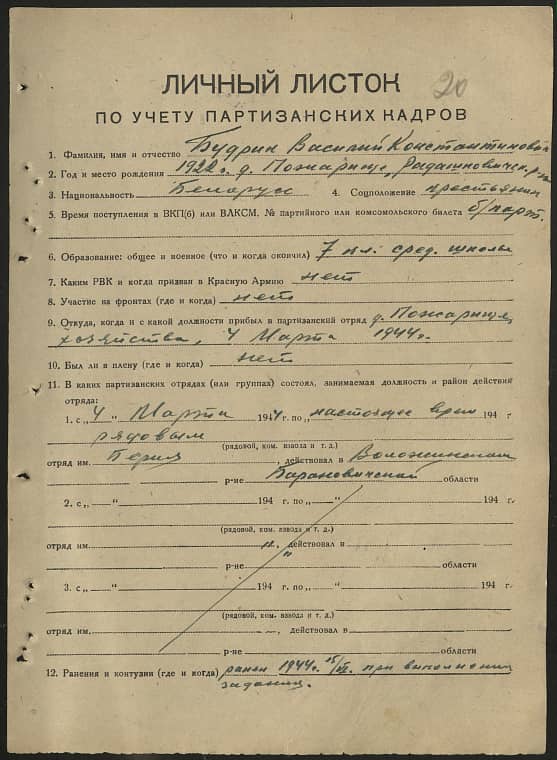 20
ЛИЧНЫЙ ЛИСТОК
ПО УЧЕТУ ПАРТИЗАНСКИХ КАДРОВ
1. Фамилия, имя и отчество Будрик Василий Константинович
2. Год и место рождения 1922 г. д. Пожарище, Радашковичск. р-на
3. Национальность Беларусс 4. Соцположение крестьянин
5. Время поступления в ВКП(б) или ВЛКСМ, № партийного или комсомольского билета б/парт.
6. Образование: общее и военное (что и когда окончил) 7 кл: сред. школы
7. Каким РВК и когда призван в Красную Армию нет
8. Участие на фронтах (где и когда) нет
9. Откуда, когда и с какой должности прибыл в партизанский отряд д. Пожарище,
хозяйства, 4 Марта 1944 г.
10. Был ли в плену (где и когда) нет
11. В каких партизанских отрядах (или группах) состоял, занимаемая должность и район действия
отряда:
1. с „4„ Марта 1944 г. по „настоящее врем 194 г
рядовым
(рядовой, ком. взвода и т. д.)
отряд им. , действовал в Воложинском
р-не Барановичской области
2. с „ “ 194 г. по „ “ 194 г.
(рядовой, ком. взвода и т. д.)
отряд им. , действовал в
р-не области
3. с „ “ 194 г. по „ “ 194 г
(рядовой, ком. взвода и т. д.)
отряд им. , действовал в
р-не области
12. Ранения и контузии (где и когда) ранен 1944 г. при выполнении
задания.